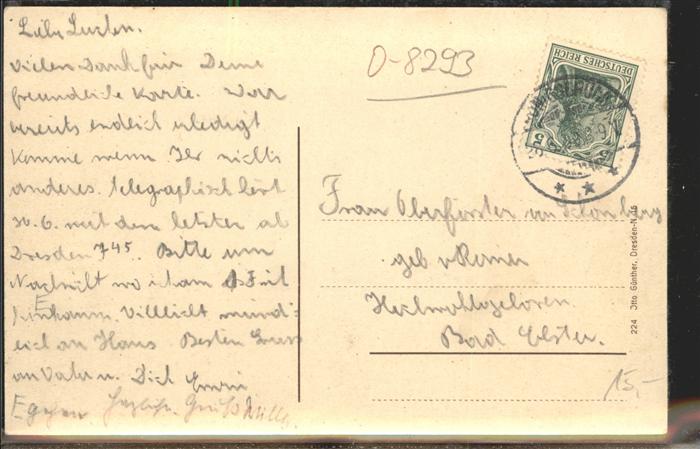 Vielen Dank für Deine
freundliche Karte. War
bereits endlich erledigt
komme wenn Ihr nichts
anderes telegraphisch hört
30.6. mit dem letzten ab
Dresden 7 45. Bitte um
Nachricht wo ich am
Vielleicht münd-
lich an Hans Besten Gruss
an Vater u. Dich Erwin
Gruß
O-8293
DEUTSCHES REICH
5
5
Frau Oberförster von Schönberg
geb v Römer
Hochwohlgeboren
Bad Elster.
224 Otto Günther, Dresden-N. 15
15,-